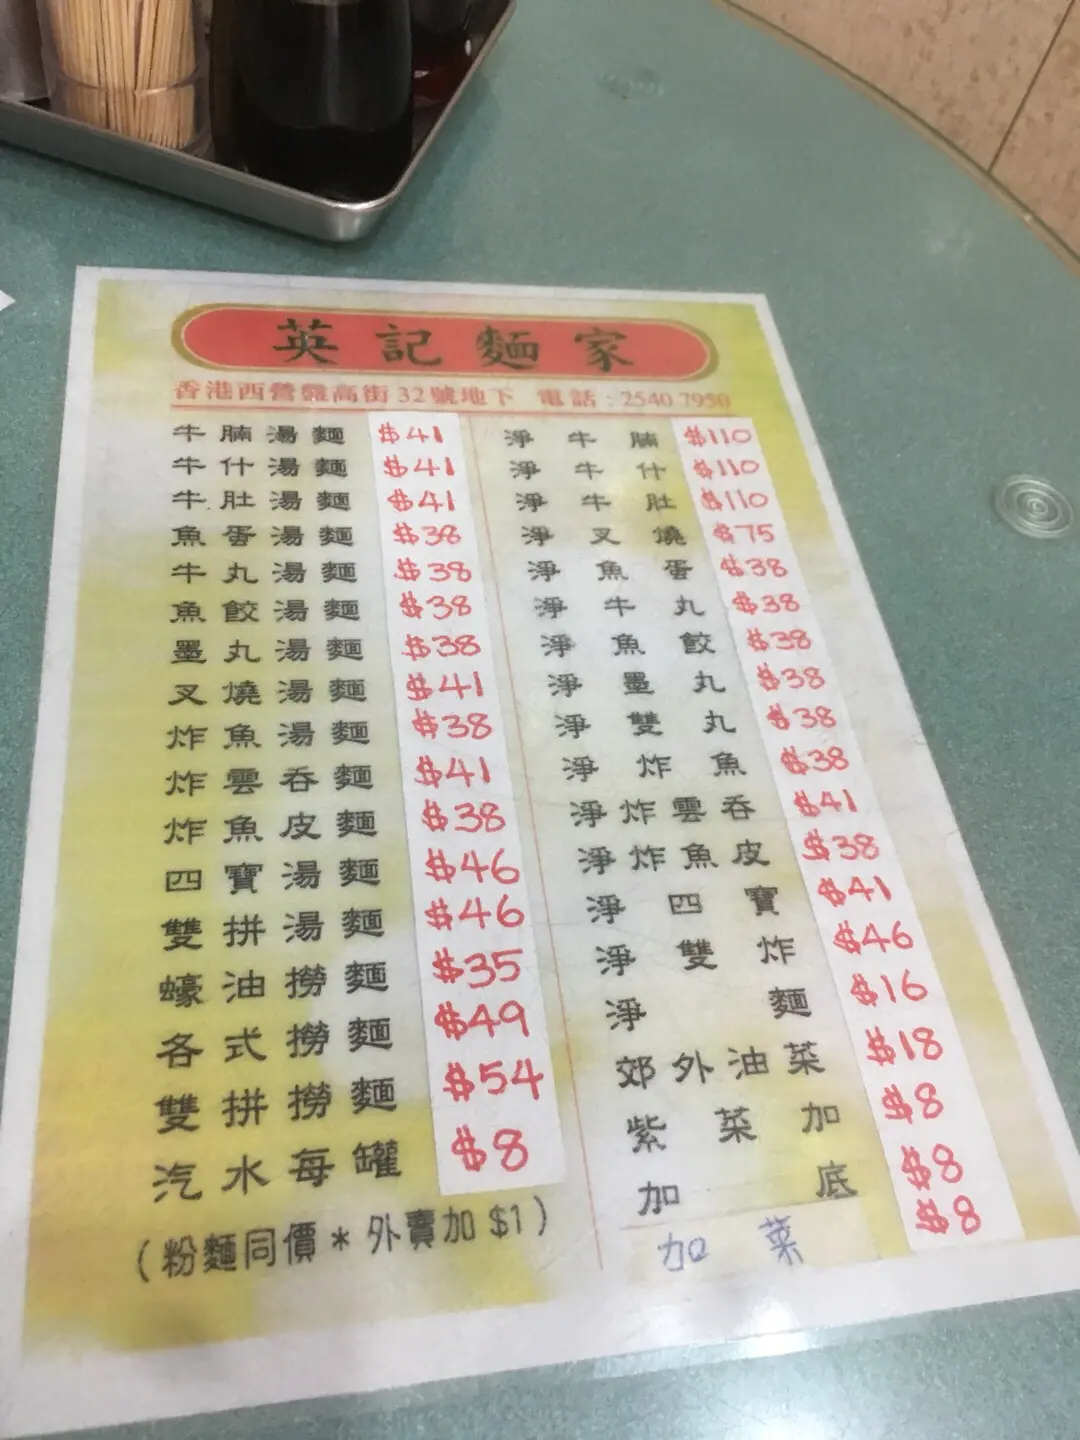 英記麵家
香港西營盤高街32號地下 電話：2540 7950
牛腩湯麵 $41
牛什湯麵 $41
牛肚湯麵 $41
魚蛋湯麵 $38
牛丸湯麵 $38
魚餃湯麵 $38
墨丸湯麵 $38
叉燒湯麵 $41
炸魚湯麵 $38
炸雲吞麵 $41
炸魚皮麵 $38
四寶湯麵 $46
雙拼湯麵 $46
蠔油撈麵 $35
各式撈麵 $49
雙拼撈麵 $54
汽水每罐 $8
(粉麵同價*外賣加$1)
淨牛腩 $110
淨牛什 $110
淨牛肚 $110
淨叉燒 $75
淨魚蛋 $38
淨牛丸 $38
淨魚餃 $38
淨墨丸 $38
淨雙丸 $38
淨炸魚 $38
淨炸雲吞 $41
淨炸魚皮 $38
淨四寶 $41
淨雙炸 $46
淨麵 $16
郊外油菜 $18
紫菜加 $8
加底 $8
加菜 $8